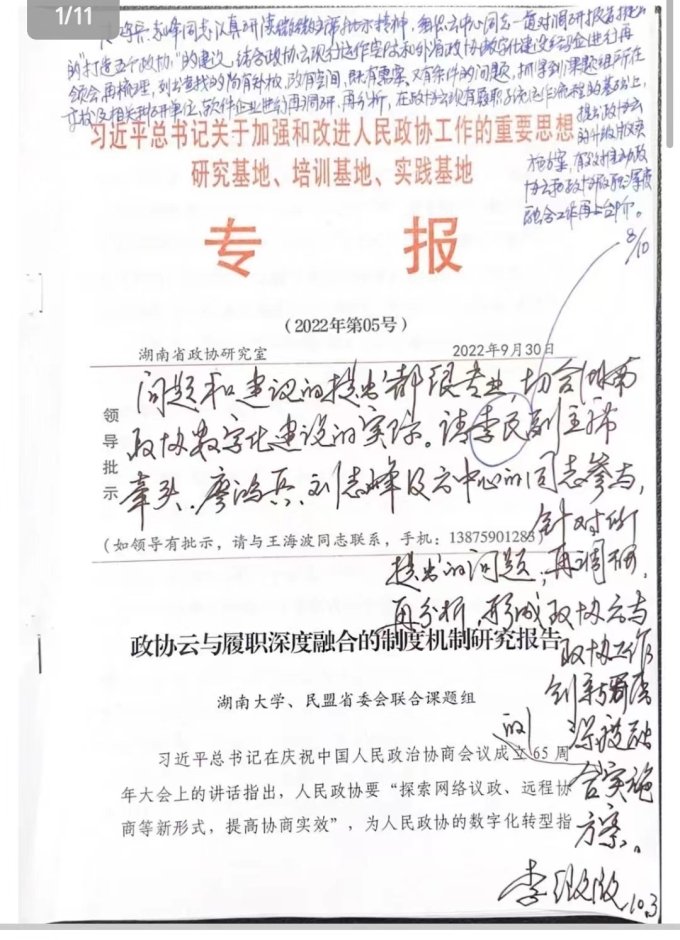 1/11
鸿兵、志峰同志:认真研读微微主席批示精神,组织云中心同志一道对调研报告提出
的"打造五个政协"的建议,结合政协云现行运作实际和外省政协数字化建设经验进行再
领会再梳理,列出查找的尚有补板,政有空间,既有需要又有条件的问题,抓紧到课题组所在
高校及相关科研单位、软件企业进行再调研、再分析,在政协云现有履职系统运作流程的基础上,
提出政协云
的升级版实
施方案,
融合工作再上台阶。
8/10
习近平总书记关于加强和改进人民政协工作的重要思想
研究基地、培训基地、实践基地
专 报
(2022年第05号)
湖南省政协研究室 2022年9月30日
领导批示
问题和建议的提出都很专业,切合湖南
政协数字化建设的实际。请李民副主席
牵头,廖鸿兵、刘志峰及云中心的同志参与,
针对所
(如领导有批示,请与王海波同志联系,手机:13875901283)
提出的问题,再调研,
再分析,形成政协云与
政协工作
政协云与履职深度融合的制度机制研究报告
湖南大学、民盟省委会联合课题组
的 深度融
习近平总书记在庆祝中国人民政治协商会议成立65周
合实施
年大会上的讲话指出,人民政协要"探索网络议政、远程协
方案。
商等新形式,提高协商实效",为人民政协的数字化转型指
李微微 10.3